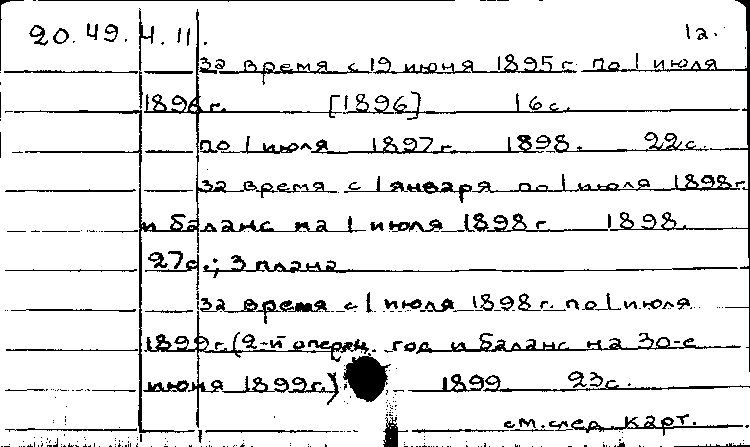 20.49.4.11. 1а.
за время с 19 июня 1895 г по 1 июля
1896 г. [1896] 16 с.
по 1 июля 1897 г. 1898. 22 с.
за время с 1 января по 1 июля 1898 г.
и баланс на 1 июля 1898 г 1898.
27 с.; 3 плана
за время с 1 июля 1898 г. по 1 июля
1899 г. (2-й операц. год и баланс на 30-е
июня 1899 г.) 1899. 23 с.
см. след. карт.